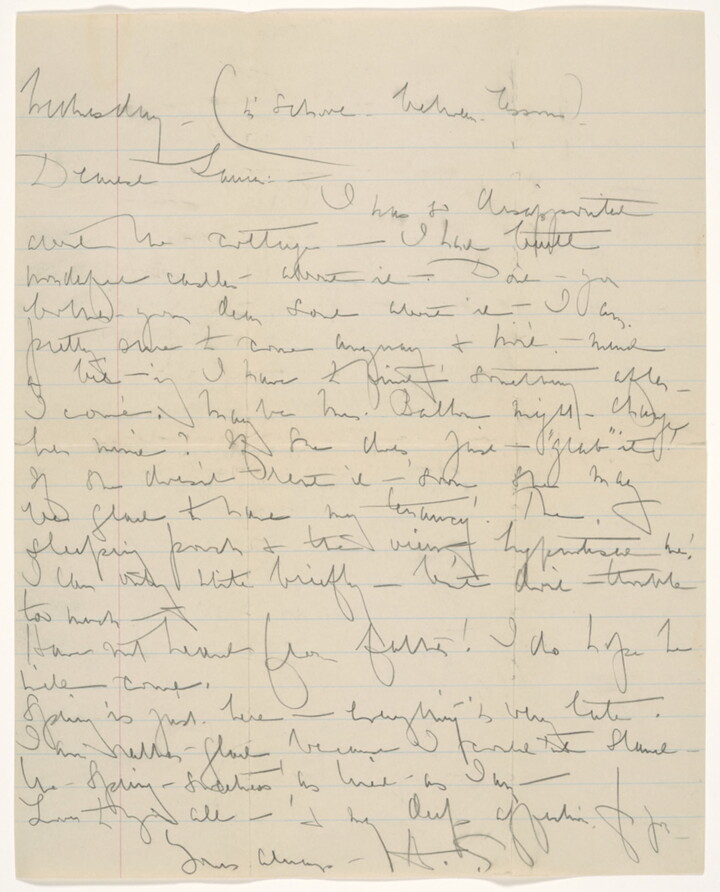 Wednesday - (in School - between lessons).
Dearest Laura: -
I was so disappointed
about the cottage - I had built
wonderful castles about it - Don't - you
bother your dear soul about it - I am
pretty sure to come anyway & won't - mind
a bit - if I have to find something after -
I come. Maybe Mrs. Ballou might - change
her mind? If she does just - "grab" it!
If she doesn't rent it - soon she may
be glad to have my tenancy! The
sleeping porch & the view hypnotise me!
I can only write briefly - but don't - trouble
too much -
Have not heard from father! I do hope he
will come.
Spring is just here - everything is very late.
I am rather glad because I could not stand -
the - Spring - as tired - as I am -
Love to you all - & my deep affection for you -
Yours always -